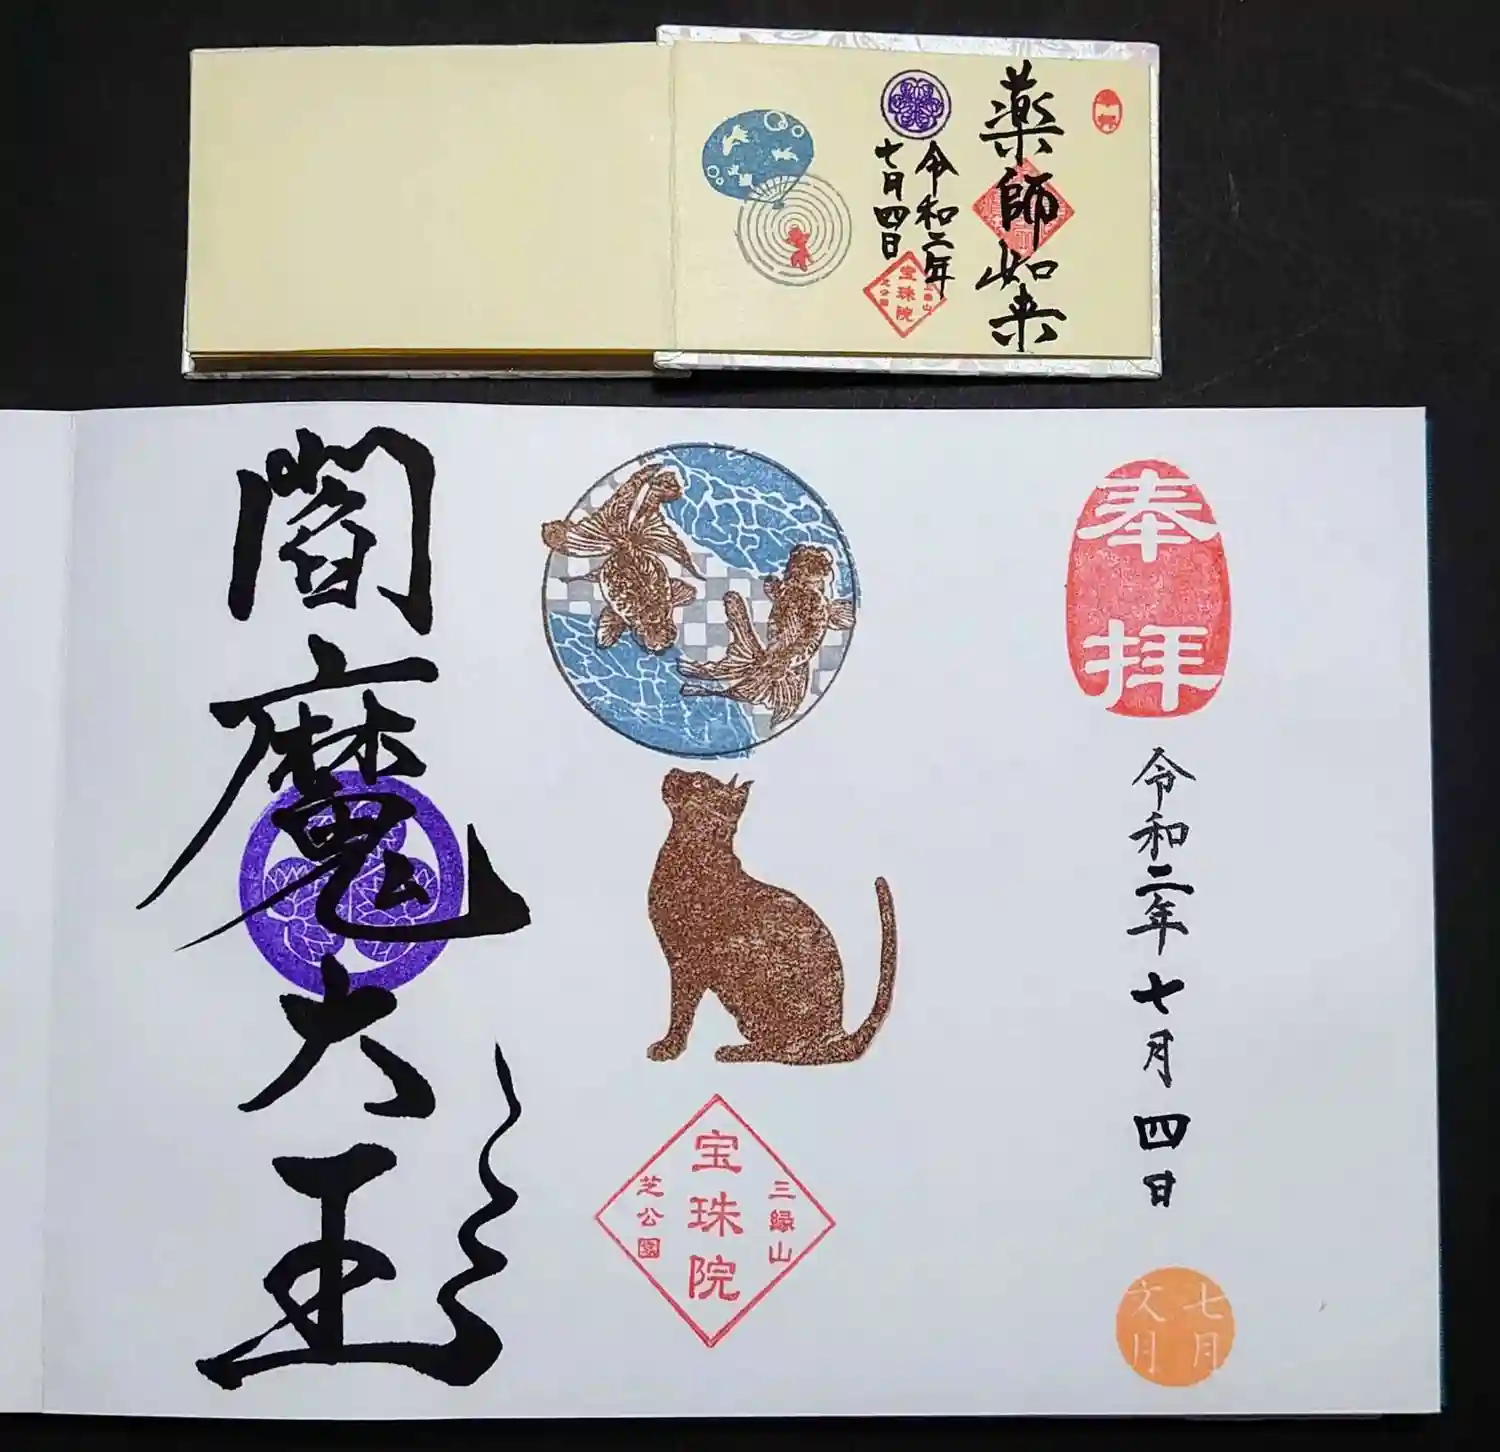 薬師如来
令和二年
七月四日
三縁山
宝珠院
芝公園
奉拝
令和二年七月四日
七月
文月
三縁山
宝珠院
芝公園
閻魔大王